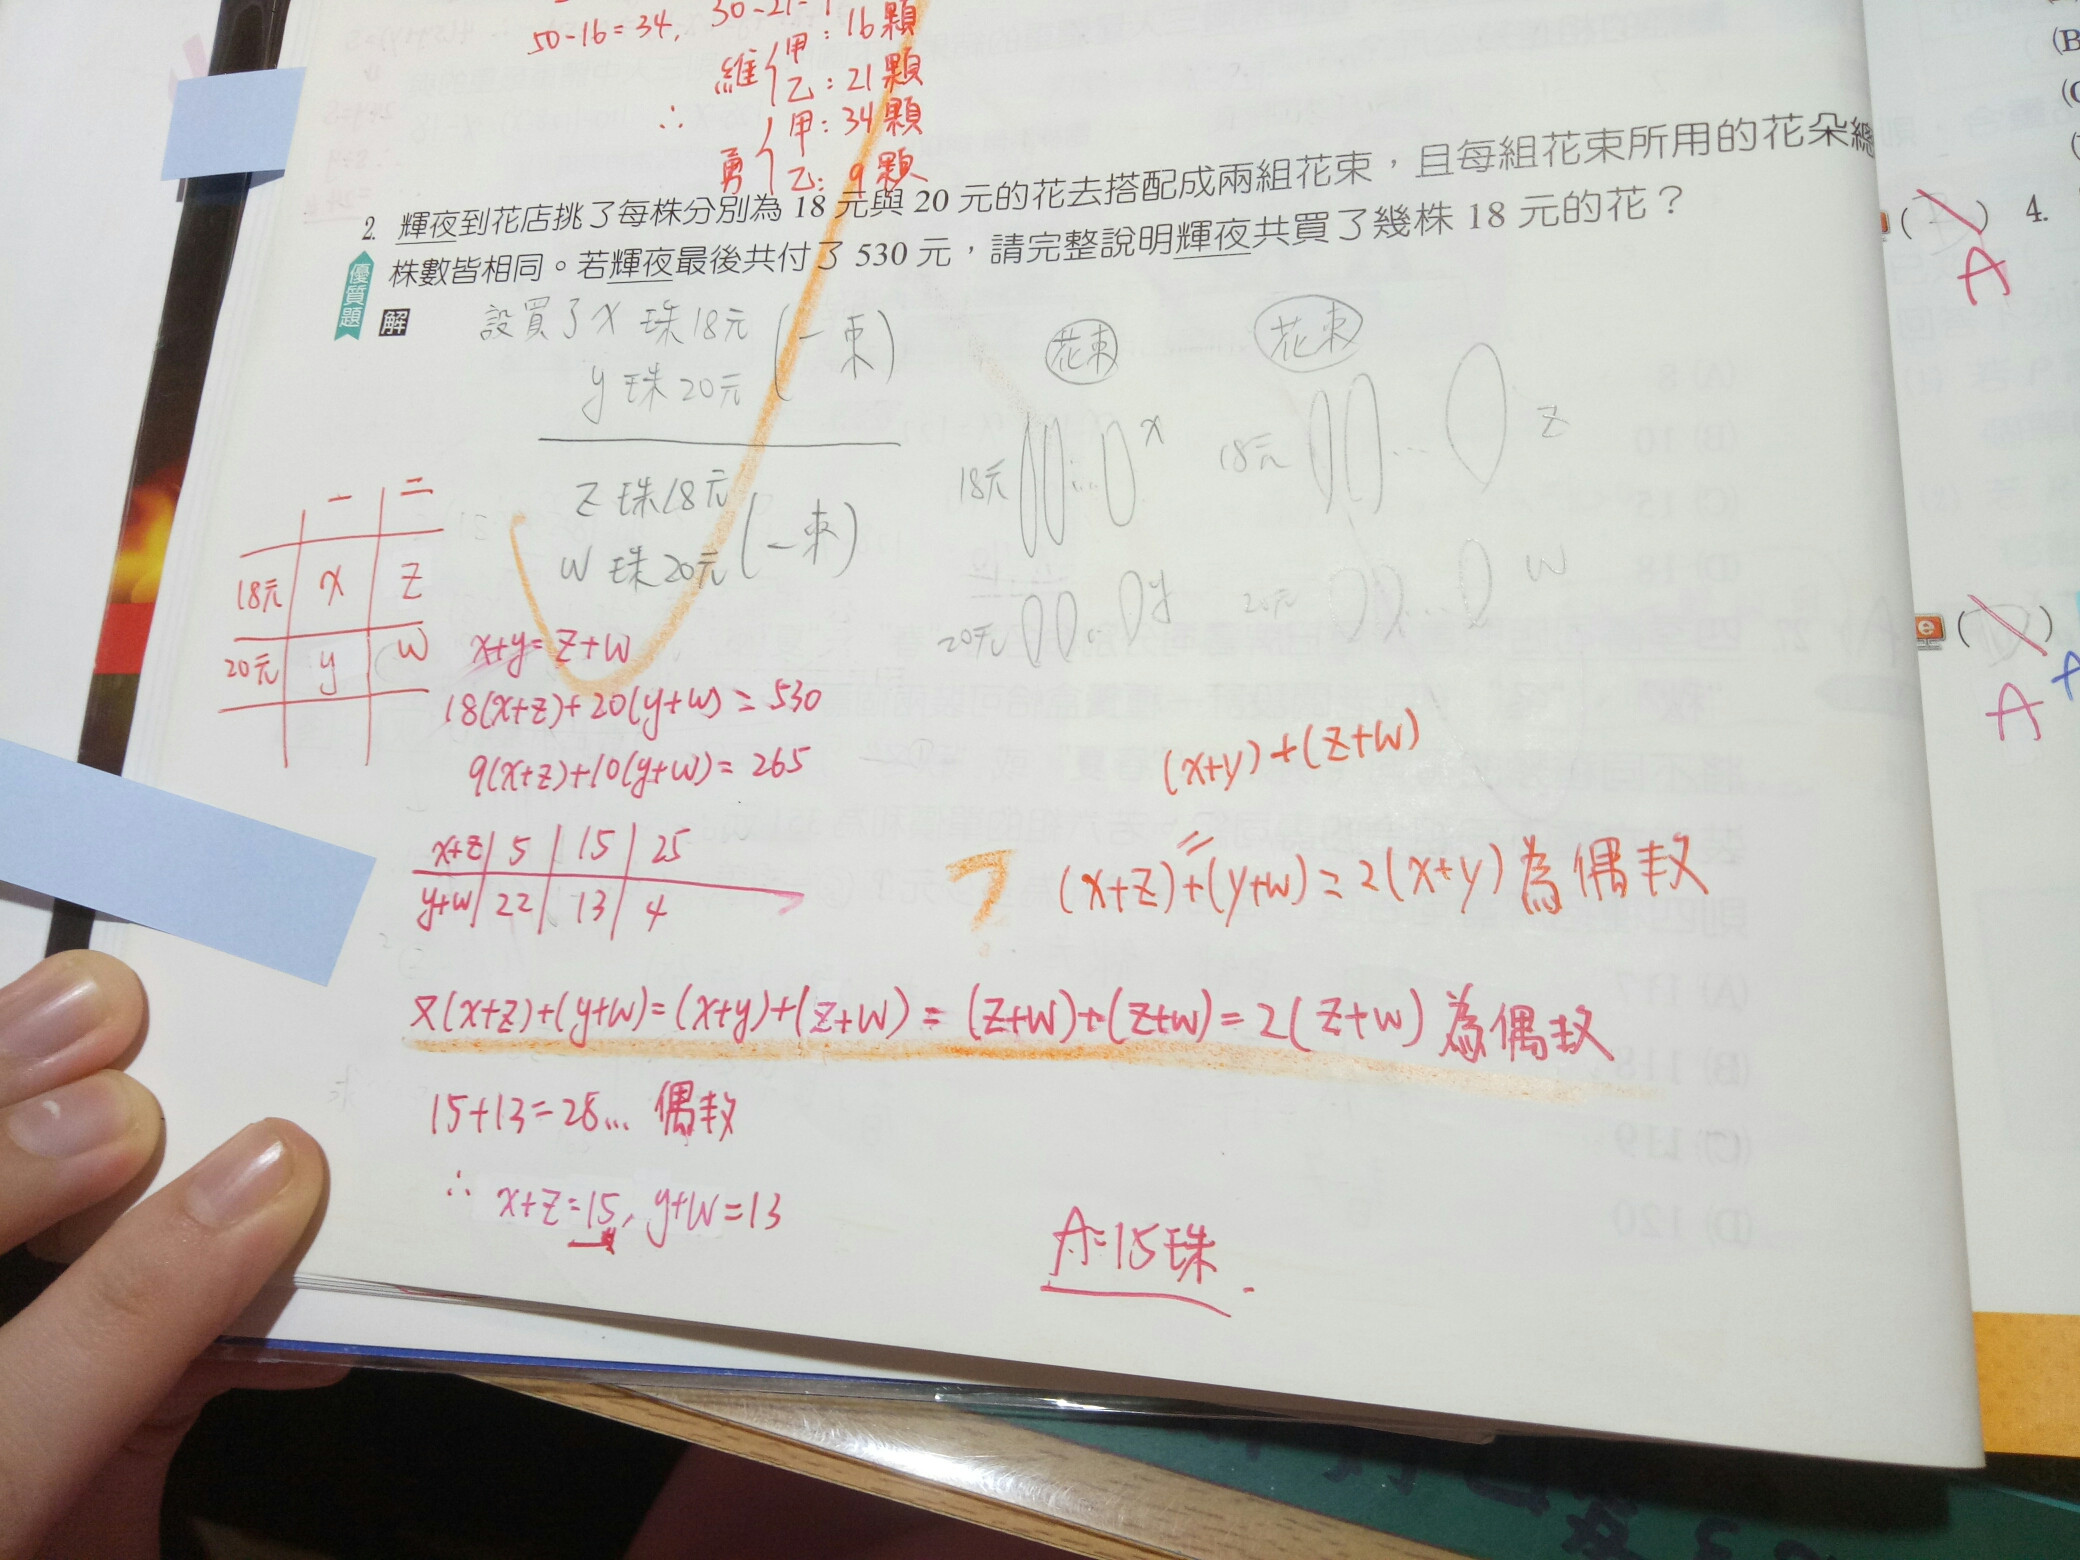 50-16=34, 30-21=
維 甲:16顆
乙:21顆
∴
勇 甲:34顆
乙:9顆
2. 輝夜到花店挑了每株分別為 18 元與 20 元的花去搭配成兩組花束,且每組花束所用的花朵總
株數皆相同。若輝夜最後共付了 530 元,請完整說明輝夜共買了幾株 18 元的花?
優質題
解
設買了x 珠18元 (一束)
y 珠20元
z 珠18元 (一束)
w 珠20元
花束
18元 ... x
20元 ... y
花束
18元 ... z
20元 ... w
一 二
18元 x z
20元 y w
x+y=z+w
18(x+z)+20(y+w)=530
9(x+z)+10(y+w)=265
x+z 5 15 25
y+w 22 13 4
(x+y)+(z+w)
(x+z)+(y+w)=2(x+y)為偶数
又(x+z)+(y+w)=(x+y)+(z+w)=(z+w)+(z+w)=2(z+w)為偶数
15+13=28... 偶数
∴ x+z=15, y+w=13
A:15珠.
4.
A
e
A
(B